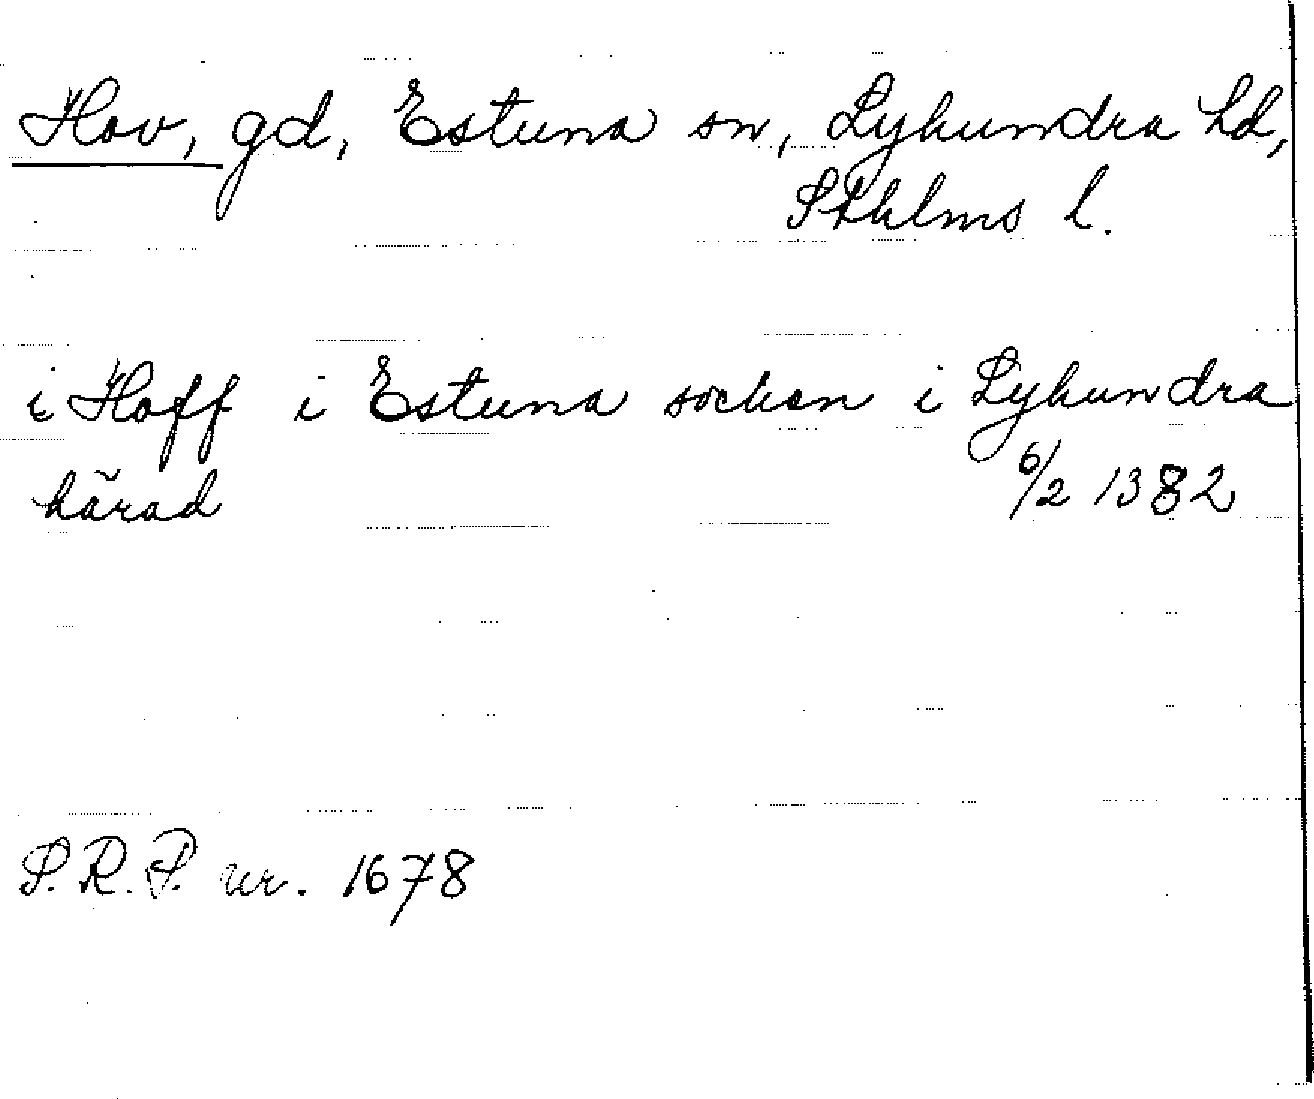 Hov, gd, Estuna sn, Lyhundra hd,
Sthlms l.
i Hoff i Estuna socken i Lyhundra
härad 6/2 1382
S.R.P. nr. 1678